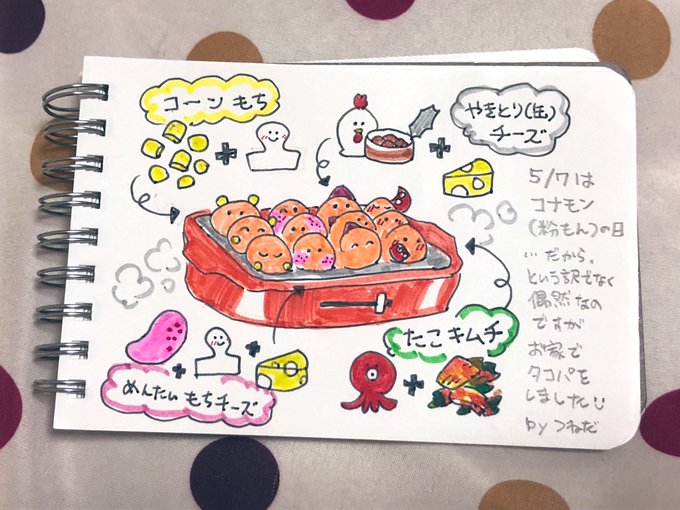 コーンもち
やきとり(缶)
チーズ
5/7は
コナモン
(粉もん)の日
…だから。
という訳でなく
偶然なの
ですが
お家で
タコパを
しました
by つねだ
たこキムチ
めんたい もちチーズ